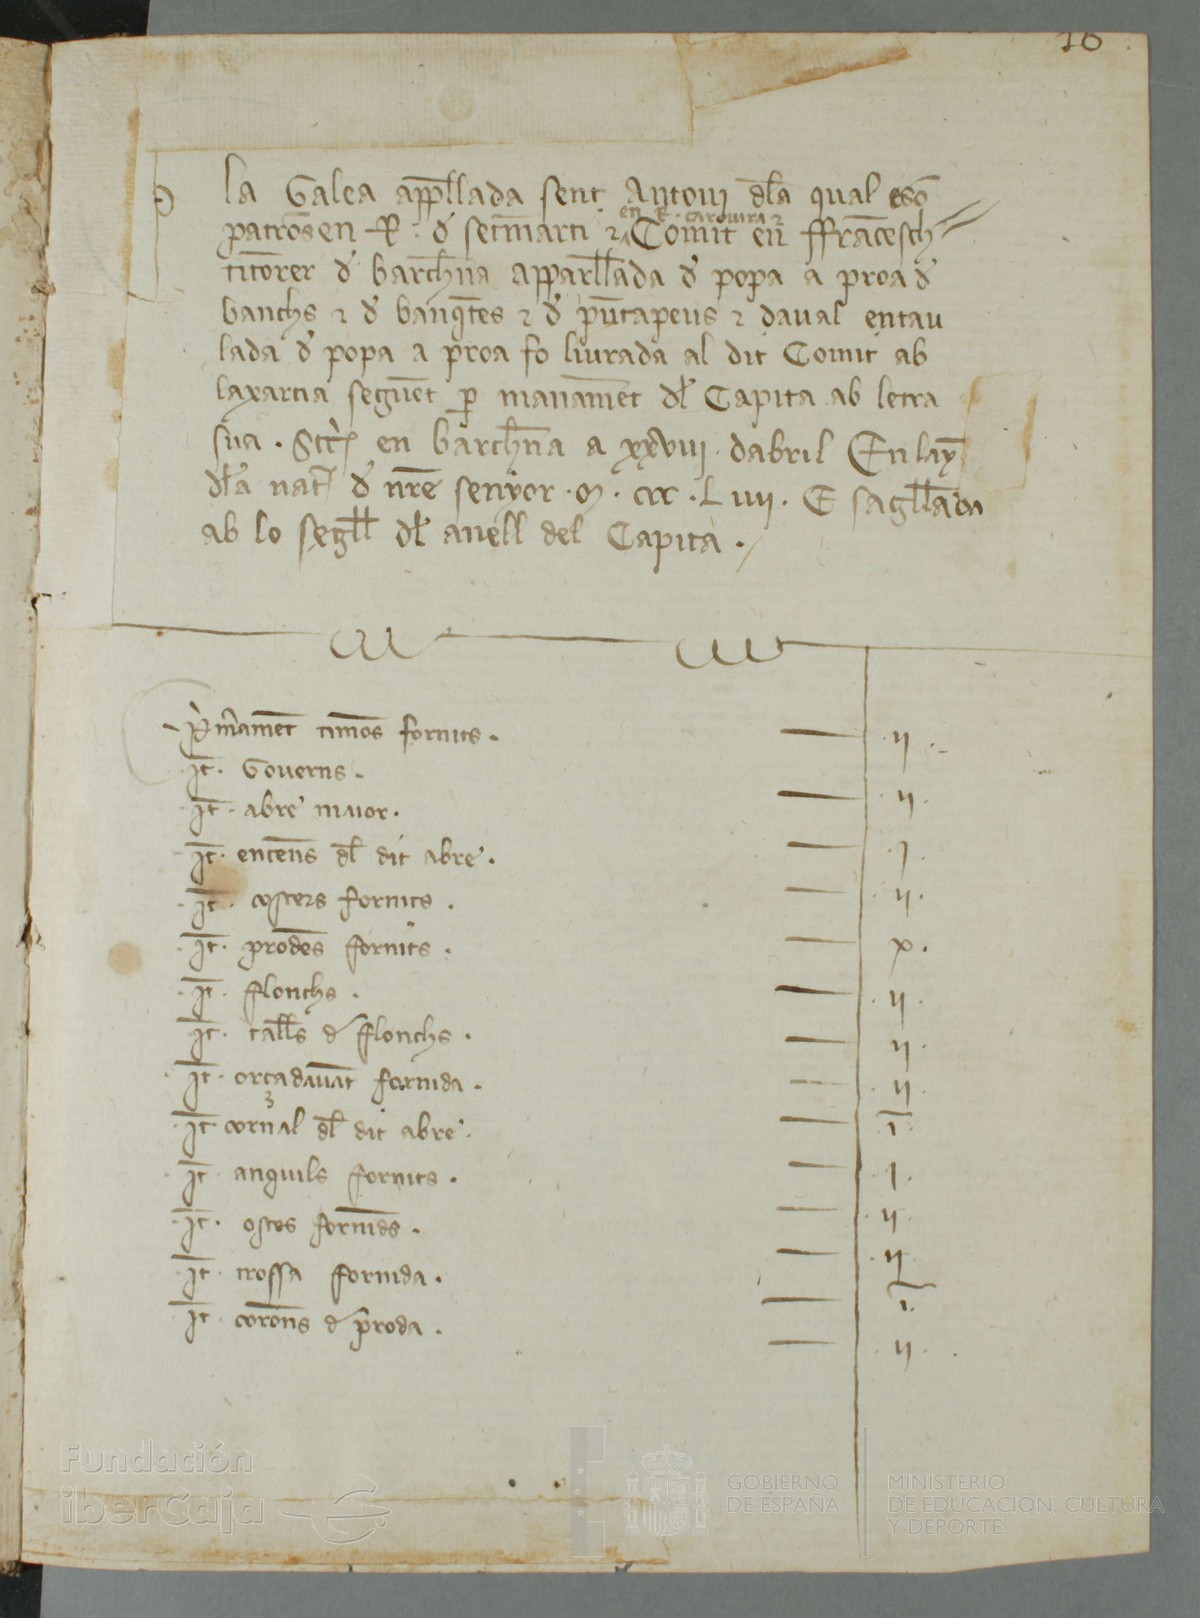 16
La Galea appllada sent Antoni dla qual eso
en R. carovira ⁊
patrosen R. d setmarti ⁊ Comit en ffrancesch
titorer d barchna apparllada d popa a proa d
banchs ⁊ d banqtes ⁊ d putapeus ⁊ daval entau
lada d popa a proa fo liurada al dit Comit ab
laxarcia seguet p manamet dl Capita ab letra
sua . en barchna a xxviii . dabril En lay
dla nat d nre senyor . M . ccc . L viii . E sagllada
ab lo segll dl anell del Capita .
Prmamet timos fornits .
ij .
It . Governs .
ij .
It . abre maior .
j .
It . entens dl dit abre .
ij .
It . costers fornits .
x .
It . prodes fornits .
ij .
It . fflonchs .
ij .
It . talls d fflonchs .
ij .
It . orcadavat fornida .
i .
It cornal dl dit abre .
j .
It anquils fornits .
ij
It . ostes fornides .
ij
It . trossa fornida .
i .
It . corons d proda .
ij .
Fundación
iberCaja
GOBIERNO
DE ESPAÑA
MINISTERIO
DE EDUCACIÓN, CULTURA
Y DEPORTE